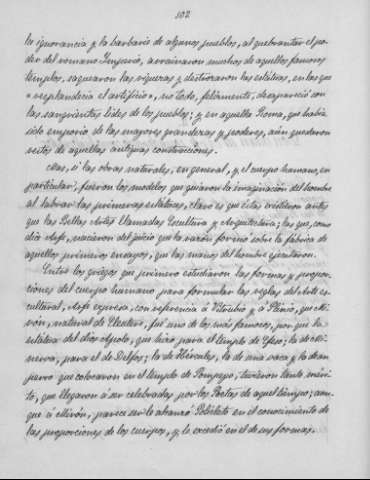 102
la ignorancia y la barbarie de algunos pueblos, al quebrantar el po-
der del romano Imperio, arruinaron muchos de aquellos famosos
templos, saquearon las riquezas y destrozaron las estátuas, en las que
"resplandecia el artificio", no todo, felizmente, desapareció con
las sangrientas lides de los pueblos; y en aquella Roma, que habia
sido emporio de las mayores grandezas y poderes, aún quedaron
restos de aquellas antiguas construcciones.
Mas, si las obras naturales, en general, y el cuerpo humano, en
particular, fueron los modelos que guiaron la imaginación del hombre
al labrar las primeras estátuas, claro es que éstas existieron antes
que las Bellas Artes llamadas Escultura y Arquitectura; las que, como
dice Arfe, nacieron del juicio que la razón formó sobre la fábrica de
aquellos primeros ensayos, que las manos del hombre ejecutaron.
Entre los griegos que primero estudiaron las formas y propor-
ciones del cuerpo humano para formular las reglas del Arte es-
cultural, Arfe expresa, con referencia á Vitrubio y á Plinio, que Mi-
rón, natural de Eleuteri, fué uno de los más famosos, por que la
estátua del dios Apolo, que hizo para el templo de Efeso; la de Mi-
nerva, para el de Delfos; la de Hércules, la de una vaca y la de un
perro que colocaron en el templo de Pompeyo, tuvieron tanto méri-
to, que llegaron á ser celebradas por los Poetas de aquel tiempo; aun-
que á Mirón, parece ser le abancó Policleto en el conocimiento de
las proporciones de los cuerpos, y le excedió en el de sus formas.